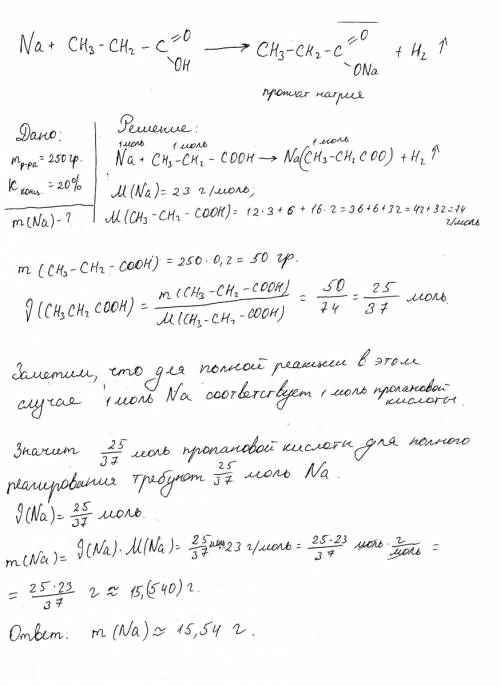 Na + CH₃-CH₂-C(=O)OH → CH₃-CH₂-C(=O)ONa + H₂ ↑
пропат натрия
Дано:
mр-ра = 250 гр.
Kконц. = 20%
m(Na) - ?
Решение:
1 моль 1 моль 1 моль
Na + CH₃-CH₂-COOH → Na(CH₃-CH₂COO) + H₂ ↑
M(Na) = 23 г/моль;
M(CH₃-CH₂-COOH) = 12·3+6+16·2 = 36+6+32 = 42+32 = 74 г/моль
m(CH₃-CH₂-COOH) = 250·0,2 = 50 гр.
J(CH₃CH₂COOH) = m(CH₃-CH₂-COOH)/M(CH₃-CH₂-COOH) = 50/74 = 25/37 моль.
Заметим, что для полной реакции в этом
случае 1 моль Na соответствует 1 моль пропановой
кислоты.
Значит 25/37 моль пропановой кислоты для полного
реагирования требуют 25/37 моль Na.
J(Na) = 25/37 моль.
m(Na) = J(Na)·M(Na) = 25/37 моль·23 г/моль = 25·23/37 моль·г/моль =
= 25·23/37 г ≈ 15,(540) г.
Ответ: m(Na) ≈ 15,54 г.